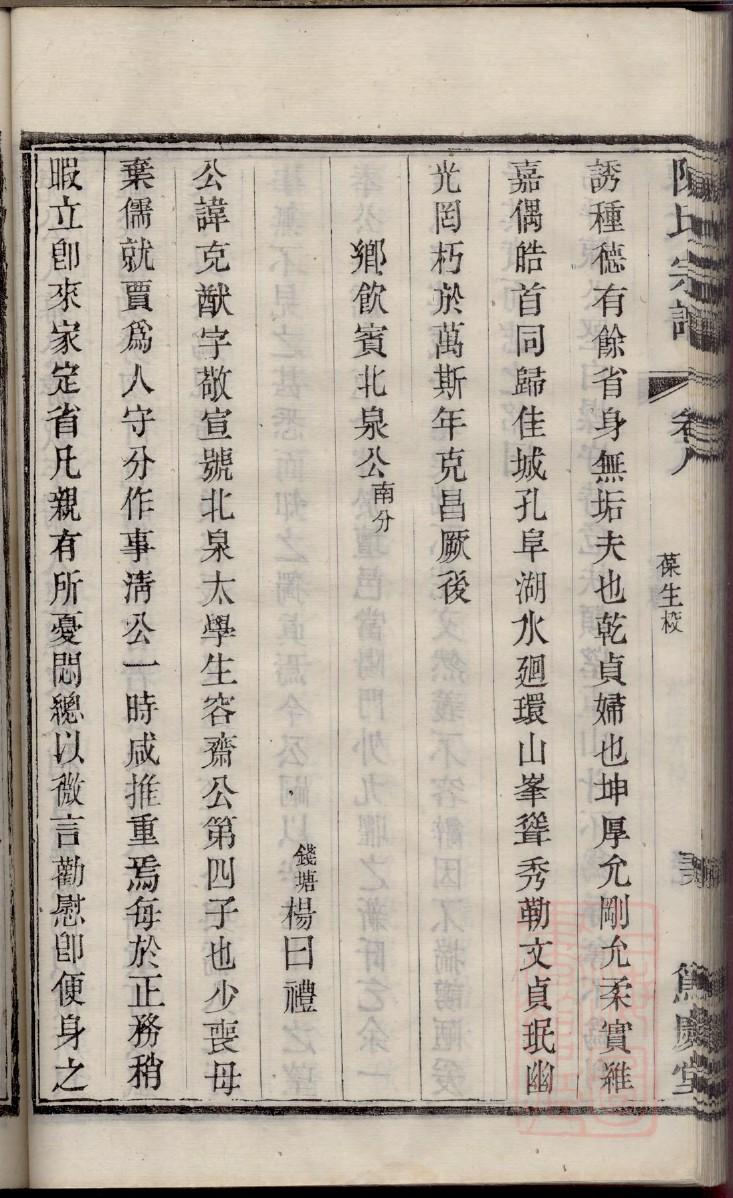 陳氏宗譜
卷八
葆生校
篤慶堂
誘種德有餘省身無垢夫也乾貞婦也坤厚允剛允柔實維
嘉偶皓首同歸佳城孔阜湖水廻環山峯聳秀勒文貞珉幽
光罔朽於萬斯年克昌厥後
鄉飮賓北泉公南分
錢塘楊曰禮
公諱克猷字敬宣號北泉太學生容齋公第四子也少喪母
棄儒就賈爲人守分作事淸公一時咸推重焉每於正務稍
暇立卽來家定省凡親有所憂悶總以微言勸慰卽便身之